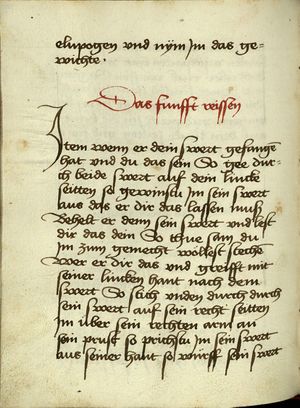 elnpogen vnd nÿm Im das ge=
wichte ·
Das funfft reissen
Item wenn er dein swert gefangē
hat vnd du das sein So gee dur=
ch beide swert auf dein lincke
seitten so gewinstu Im sein swert
aus das er dir das lassen muß
Behelt er denn sein swert vnd lest
dir das dein So thue sam du
Im zum gemecht wöllest stechē
Wer er dir das vnd greifft mit
seiner lincken hant nach dem
swert So stich vnden durch durch
sein swert auf sein recht seitten
Im über sein rechten arm an
sein prust so prichstu Im sein swert
aus seiner hant so würff sein swert